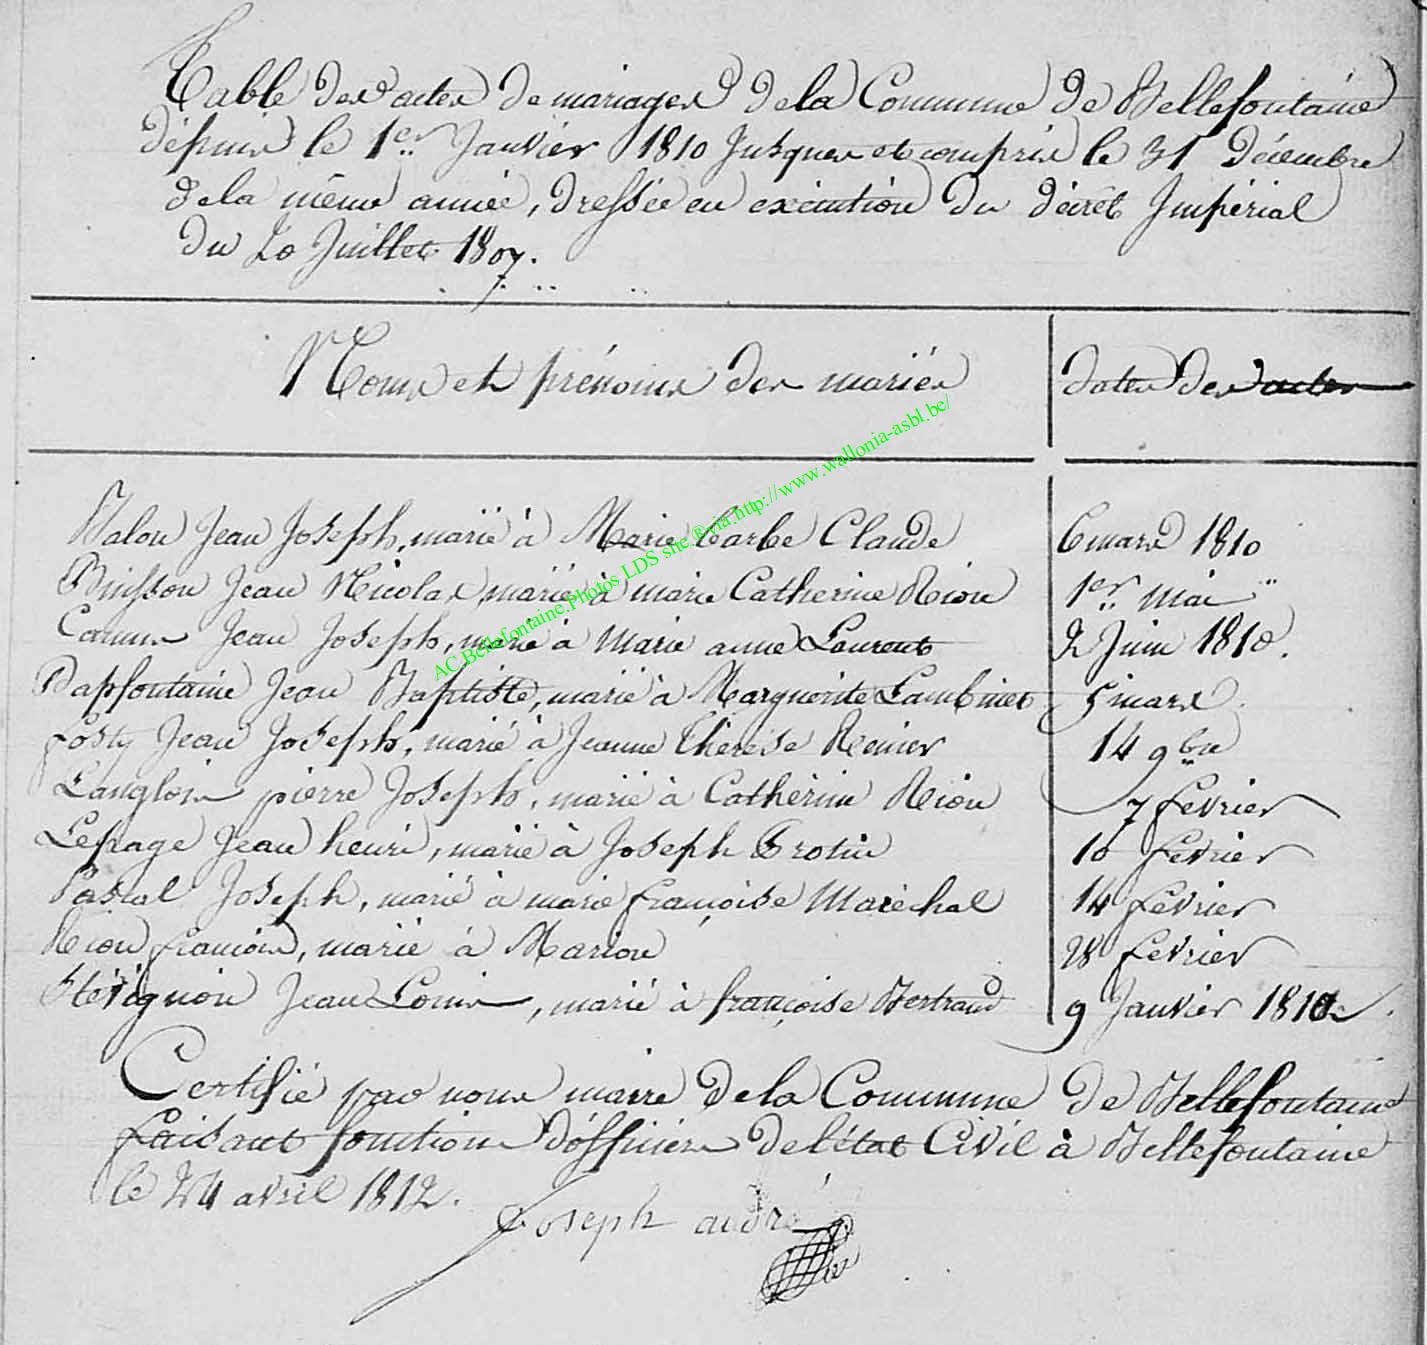 Table des actes de mariages de la Commune de Bellefontaine
depuis le 1er Janvier 1810 Jusques et compris le 31 Décembre
de la même année, dressée en exécution du décret Impérial
du 20 Juillet 1807.
Noms et prénoms des mariés
dates des actes
Balon Jean Joseph, marié à Marie barbe Claude 6 mars 1810
Buisson Jean Nicolas marié à marie Catherine Rion 1er mai "
Jean Joseph, marié à Marie anne Laurent 2 Juin 1810.
Papfontaine Jean Baptiste, marié à Marguerite Lambinet 5 mars
Fosty Jean Joseph, marié à Jeanne thérèse Renier 14 9bre
Langlois pierre Joseph, marié à Cathérine Rion 7 fevrier
Lepage Jean henri, marié à Joseph Grosin 10 fevrier
Pascal Joseph, marié à marie françoise Maréchal 14 fevrier
Rion francois, marié à Marion 28 fevrier
Stévignon Jean Louis, marié à françoise Bertrand 9 Janvier 1810
Certifié par nous maire de la Commune de Bellefontaine
faisant fonction d'officier de l'état Civil à Bellefontaine
le 24 avril 1812.
Joseph andré
AC.Bellefontaine.Photos LDS site ® via.http://www.wallonia-asbl.be/